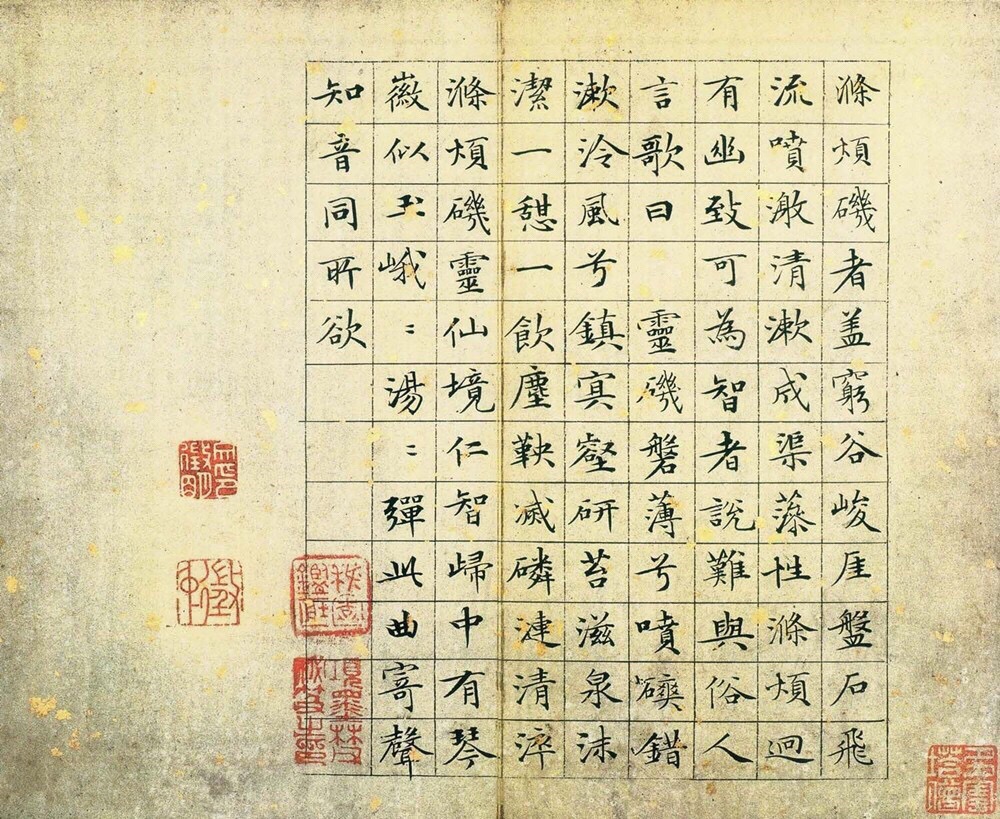 滌煩磯者盖窮谷峻厓盤石飛
流噴激清漱成渠藻性滌煩迥
有幽致可為智者說難與俗人
言歌曰 靈磯磐薄兮噴錯
漱泠風兮鎮冥壑研苔滋泉沫
潔一憩一飲塵鞅滅磷漣清淬
滌煩磯靈仙境仁智歸中有琴
徽似玉峨〻湯〻彈此曲寄聲
知音同所欲
項墨林父秘笈之印